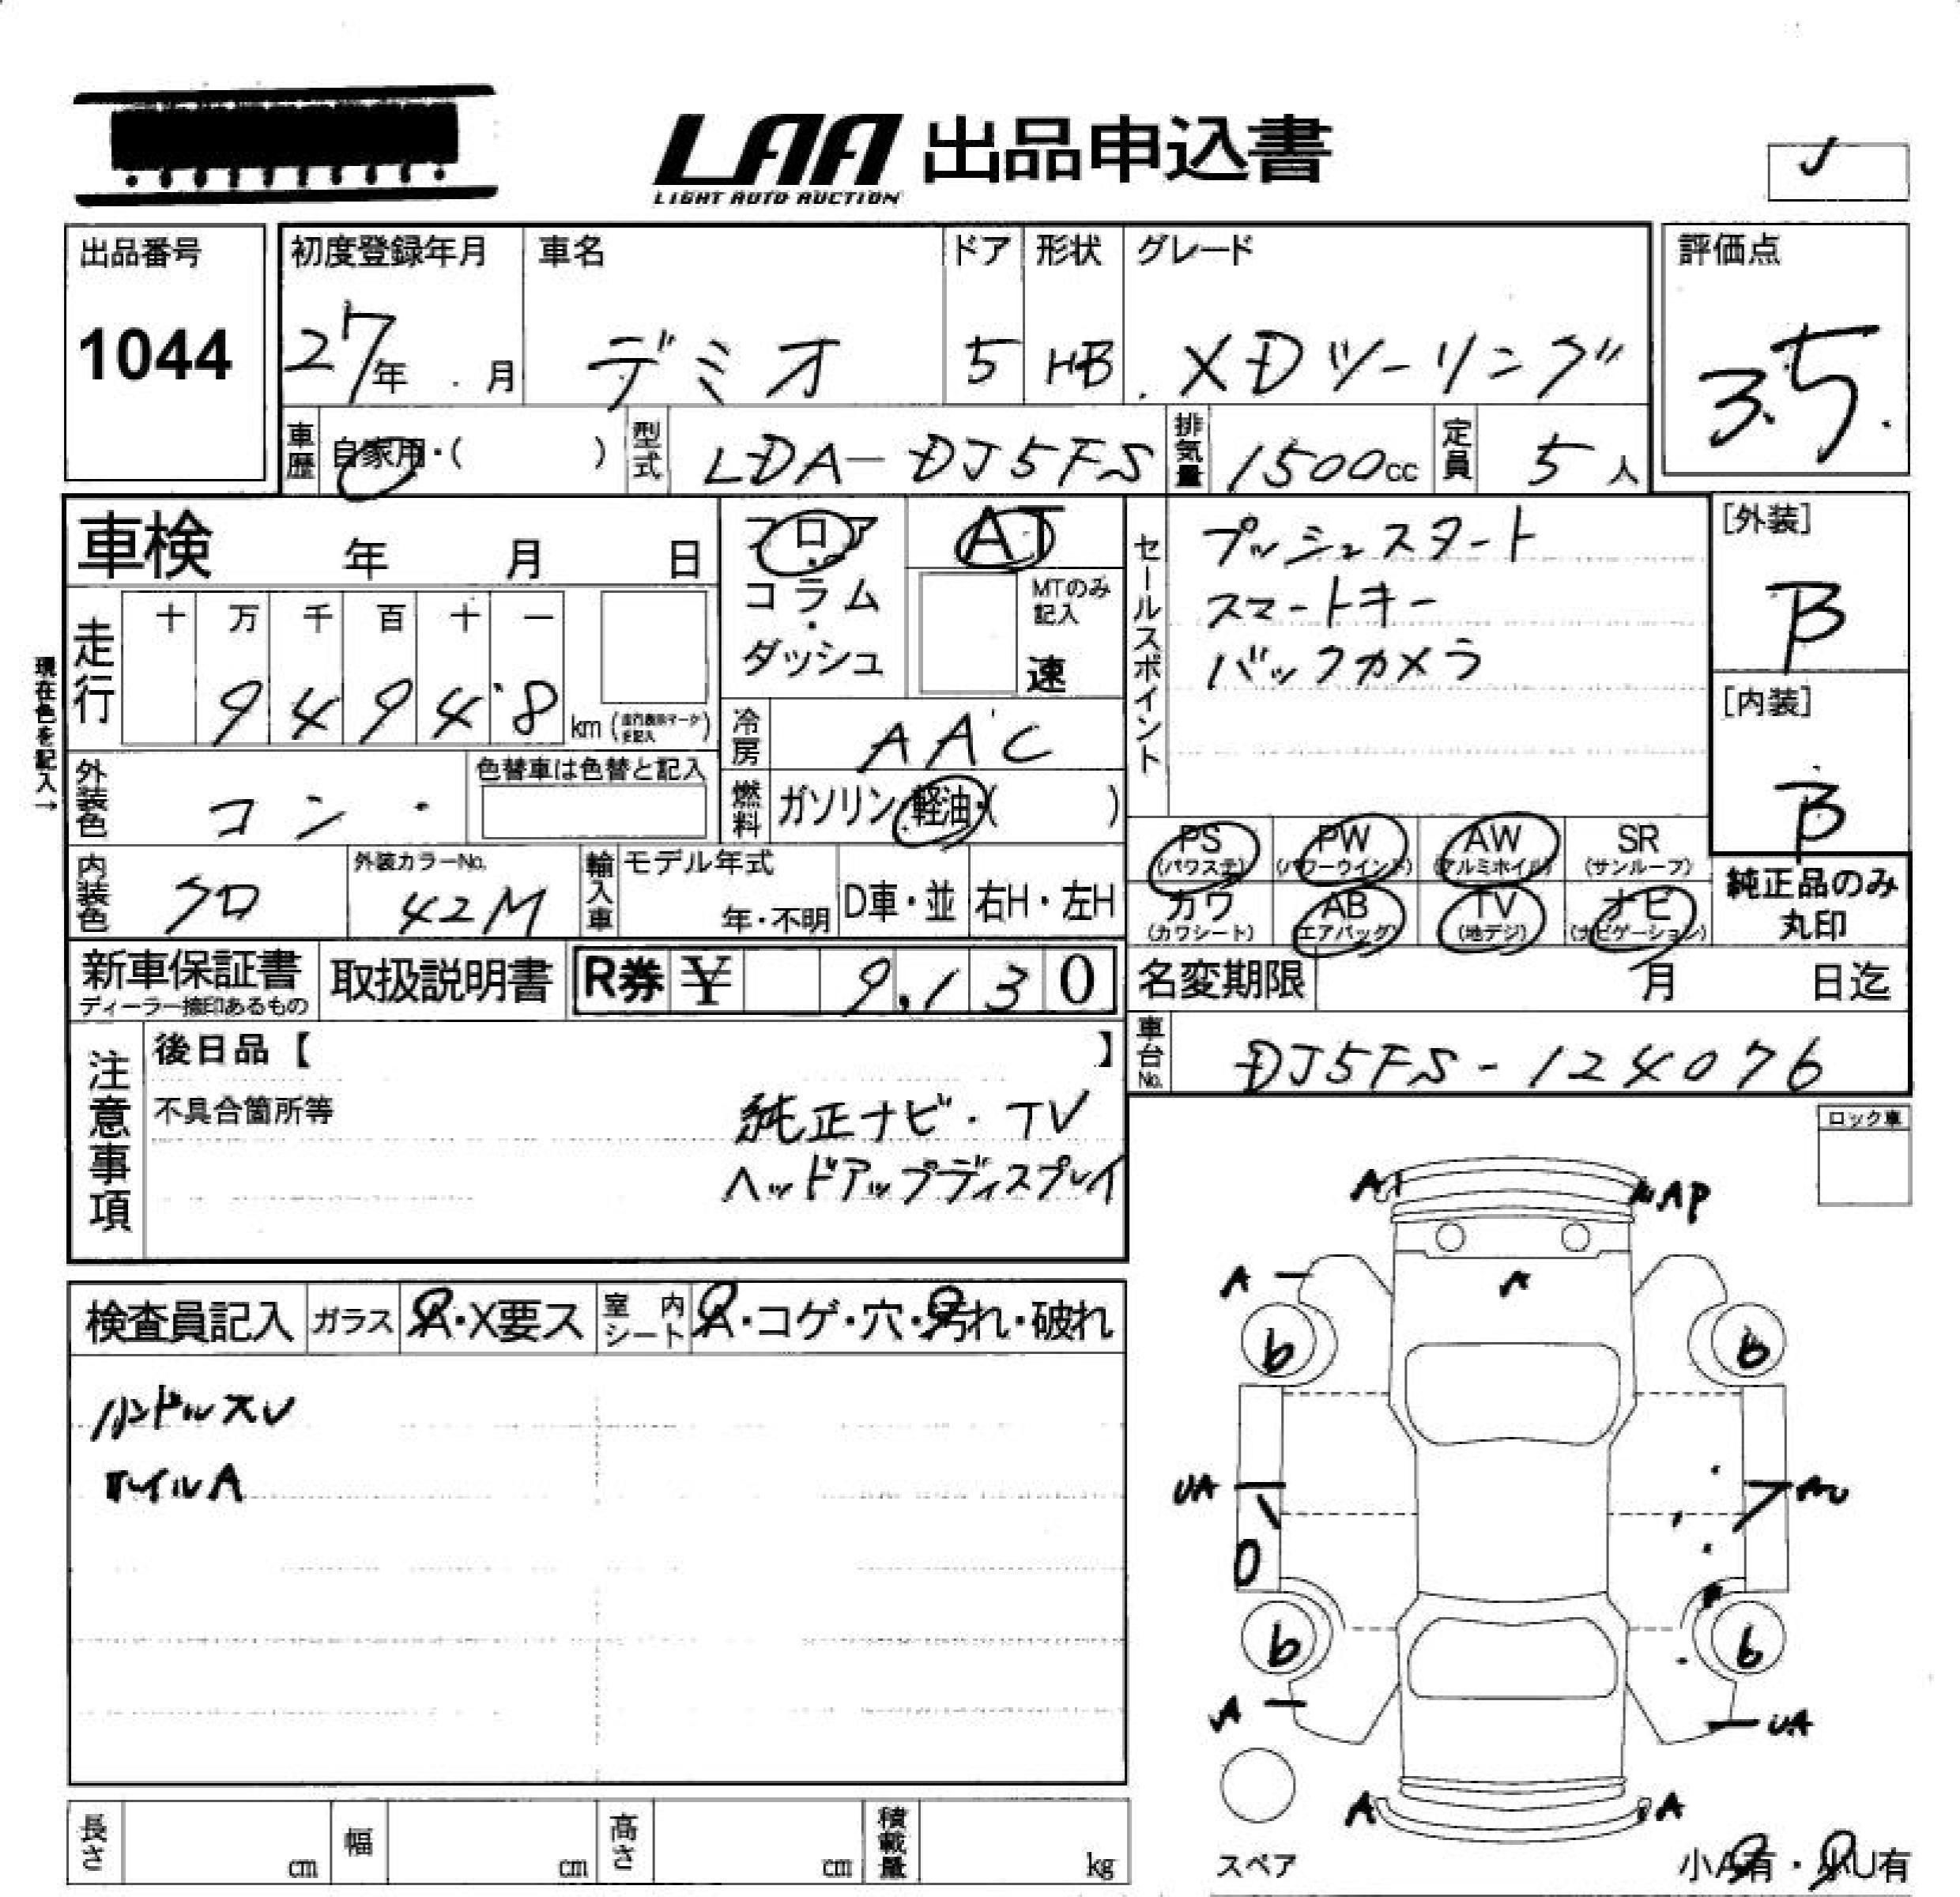 LAA 出品申込書
LIGHT AUTO AUCTION
出品番号 初度登録年月 車名 ドア 形状 グレード 評価点
1044 27年 . 月 デミオ 5 HB XDツーリング 3.5
車歴 自家用・( ) 型式 LDA-DJ5FS 排気量 1500cc 定員 5人
車検 年 月 日 フロア・コラム・ダッシュ AT
MTのみ記入 速
セールスポイント
プッシュスタート
スマートキー
バックカメラ
[外装]
B
[内装]
B
現在色を記入→
走行 十 万 千 百 十 一
9 4 9 4 8 km
冷房 AAC
外装色 コン 色替車は色替と記入
燃料 ガソリン・軽油・( )
内装色 クロ 外装カラーNo. 42M 輸入車 モデル年式 年・不明 D車・並 右H・左H
PS (パワステ) PW (パワーウインド) AW (アルミホイル) SR (サンルーフ)
カワ (カワシート) AB (エアバッグ) TV (地デジ) ナビ (ナビゲーション)
純正品のみ
丸印
新車保証書 ディーラー捺印あるもの 取扱説明書 R券 ¥ 9,130
名変期限 月 日迄
車台No. DJ5FS-124076
注意事項
後日品【 】
不具合箇所等
純正ナビ・TV
ヘッドアップディスプレイ
ロック車
検査員記入 ガラス A・X要ス 室内シート A・コゲ・穴・汚れ・破れ
ハンドルスレ
ホイルA
A AP
A A
b b
UA AU
b b
A UA
A A
スペア
小A有・小U有
長さ cm 幅 cm 高さ cm 積載量 kg